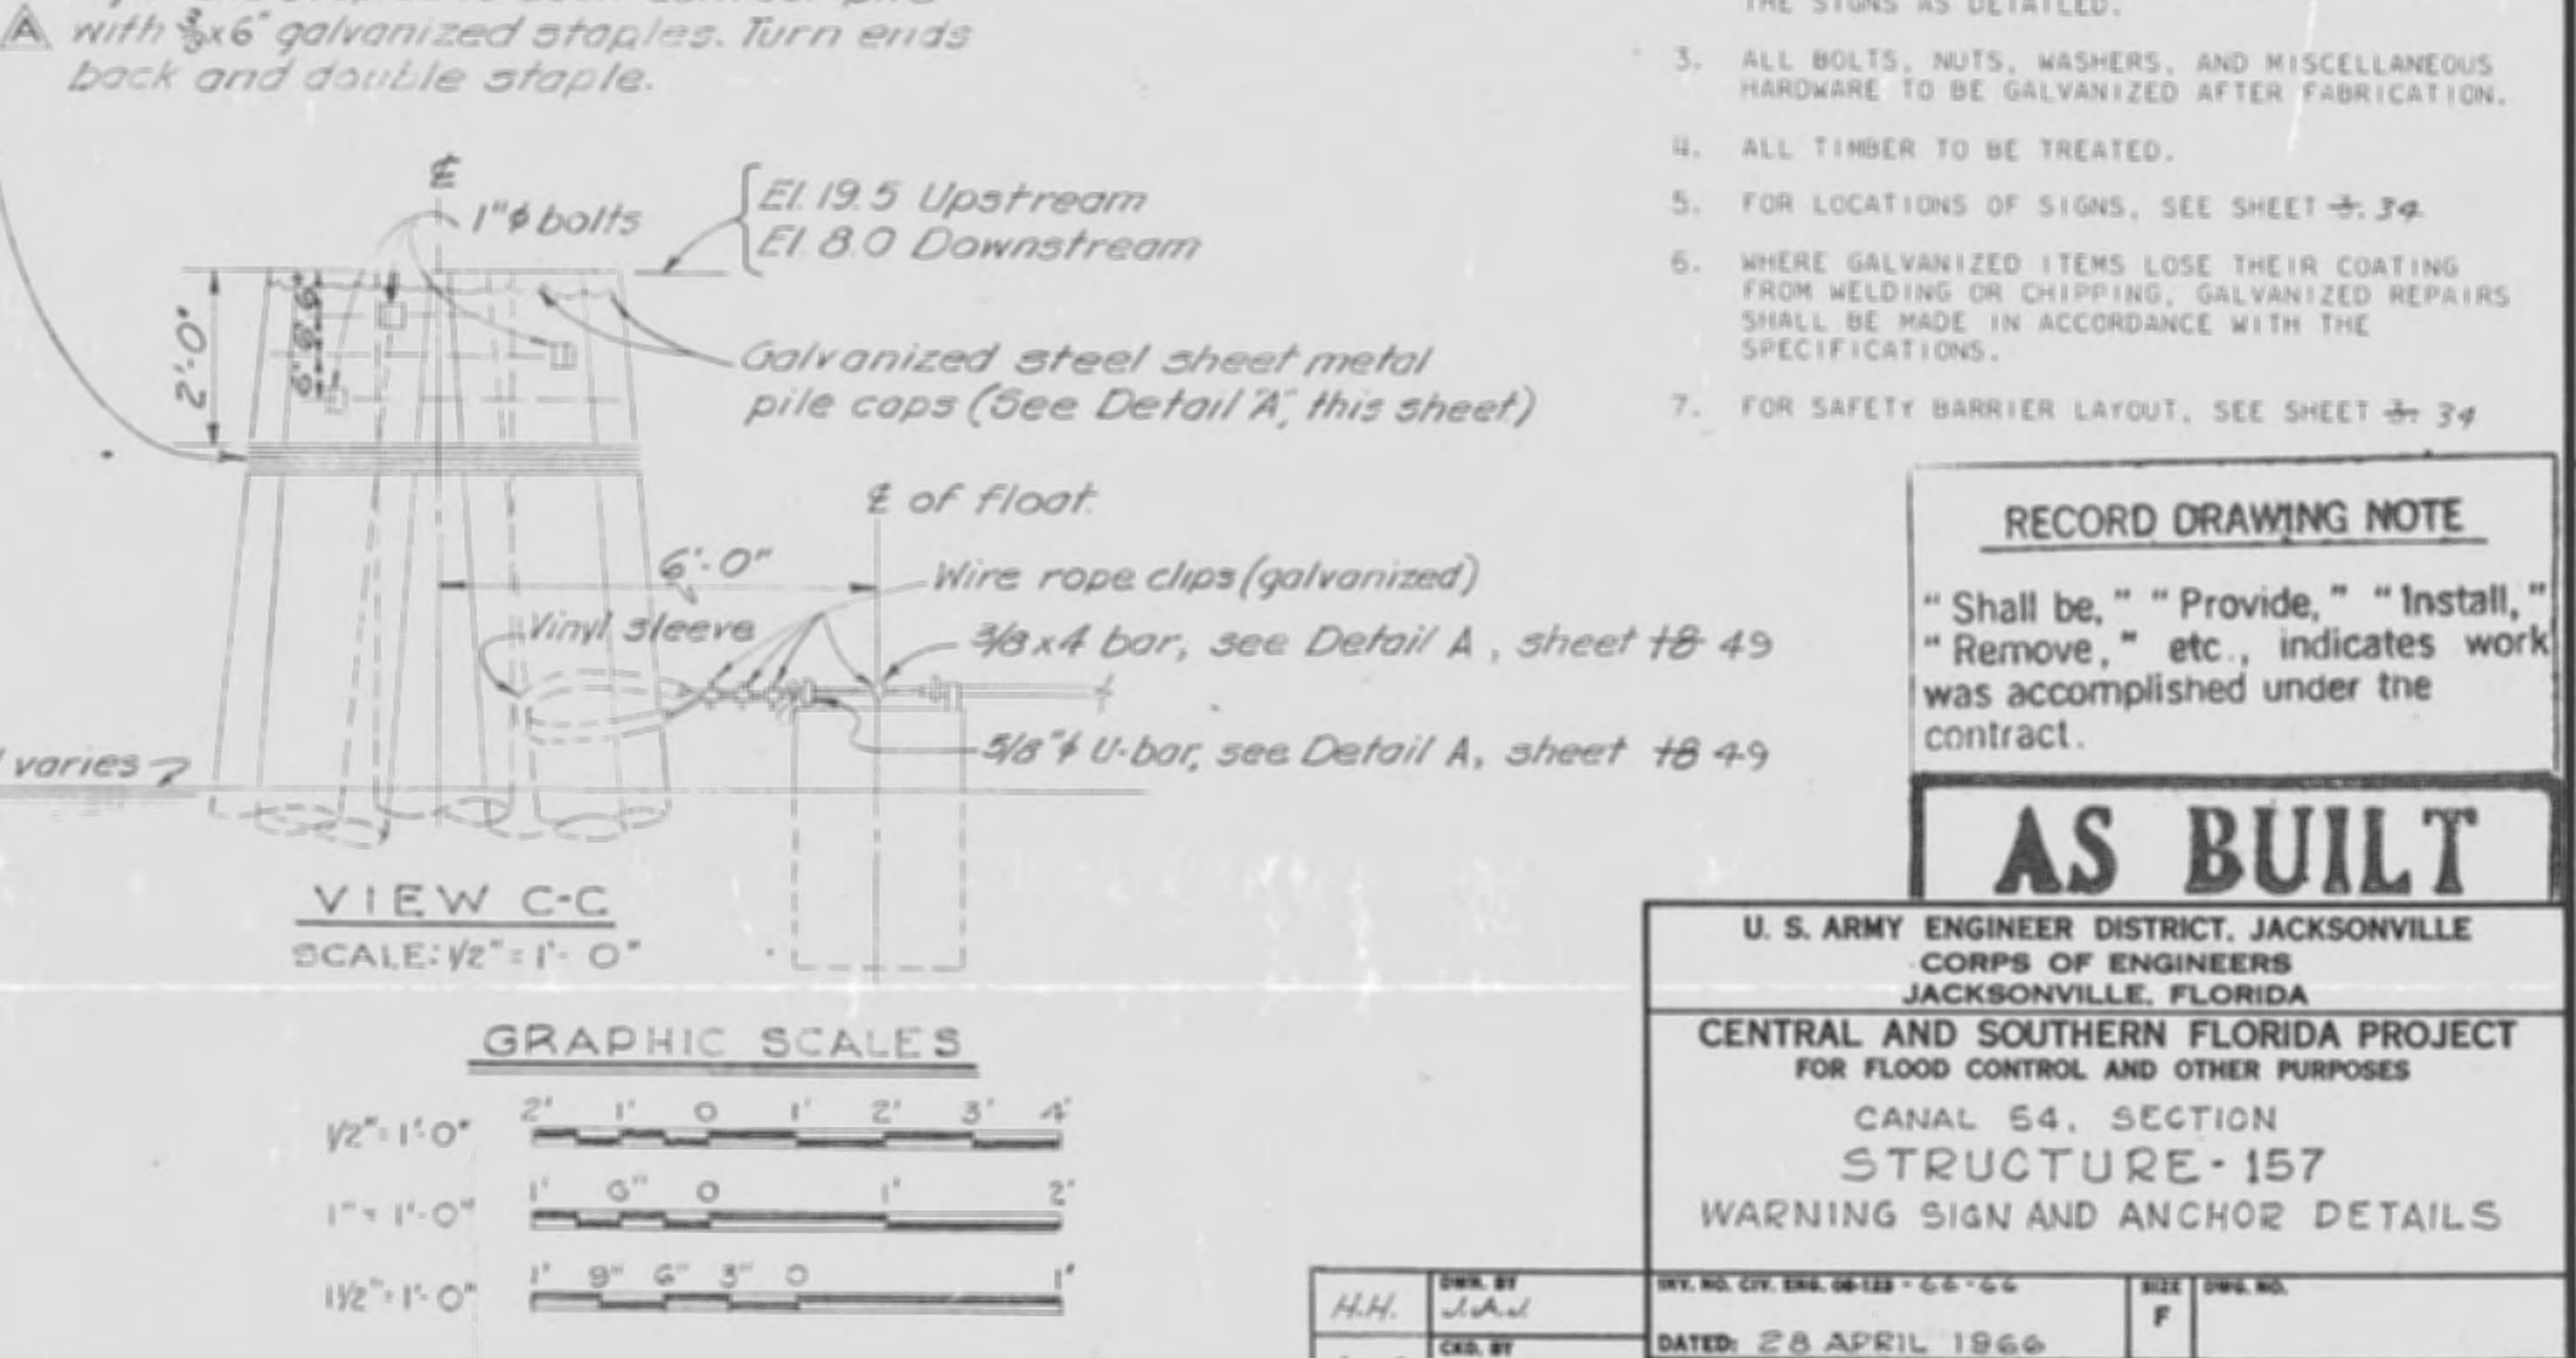 with 3/8x6" galvanized staples. Turn ends
back and double staple.
A
℄
1"ϕ bolts
El. 19.5 Upstream
El. 8.0 Downstream
2'-0"
6"
6"
Galvanized steel sheet metal
pile caps (See Detail "A", this sheet)
℄ of float.
6'-0"
Wire rope clips (galvanized)
Vinyl sleeve
3/8x4 bar, see Detail A, sheet 18 49
5/8"ϕ U-bar, see Detail A, sheet 18 49
varies
VIEW C-C
SCALE: 1/2" = 1'-0"
GRAPHIC SCALES
1/2"=1'-0" 2' 1' 0 1' 2' 3' 4'
1"=1'-0" 1' 6" 0 1' 2'
1 1/2"=1'-0" 1' 9" 6" 3" 0 1'
THE SIGNS AS DETAILED.
3. ALL BOLTS, NUTS, WASHERS, AND MISCELLANEOUS
HARDWARE TO BE GALVANIZED AFTER FABRICATION.
4. ALL TIMBER TO BE TREATED.
5. FOR LOCATIONS OF SIGNS, SEE SHEET 3. 34
6. WHERE GALVANIZED ITEMS LOSE THEIR COATING
FROM WELDING OR CHIPPING, GALVANIZED REPAIRS
SHALL BE MADE IN ACCORDANCE WITH THE
SPECIFICATIONS.
7. FOR SAFETY BARRIER LAYOUT, SEE SHEET 3. 34
RECORD DRAWING NOTE
"Shall be," "Provide," "Install,"
"Remove," etc., indicates work
was accomplished under the
contract.
AS BUILT
U. S. ARMY ENGINEER DISTRICT, JACKSONVILLE
CORPS OF ENGINEERS
JACKSONVILLE, FLORIDA
CENTRAL AND SOUTHERN FLORIDA PROJECT
FOR FLOOD CONTROL AND OTHER PURPOSES
CANAL 54, SECTION
STRUCTURE-157
WARNING SIGN AND ANCHOR DETAILS
H.H.
DWN. BY
J.A.J.
CKD. BY
INV. NO. CIV. ENG. 08-123-66-66
DATED: 28 APRIL 1966
SIZE
F
DWG. NO.